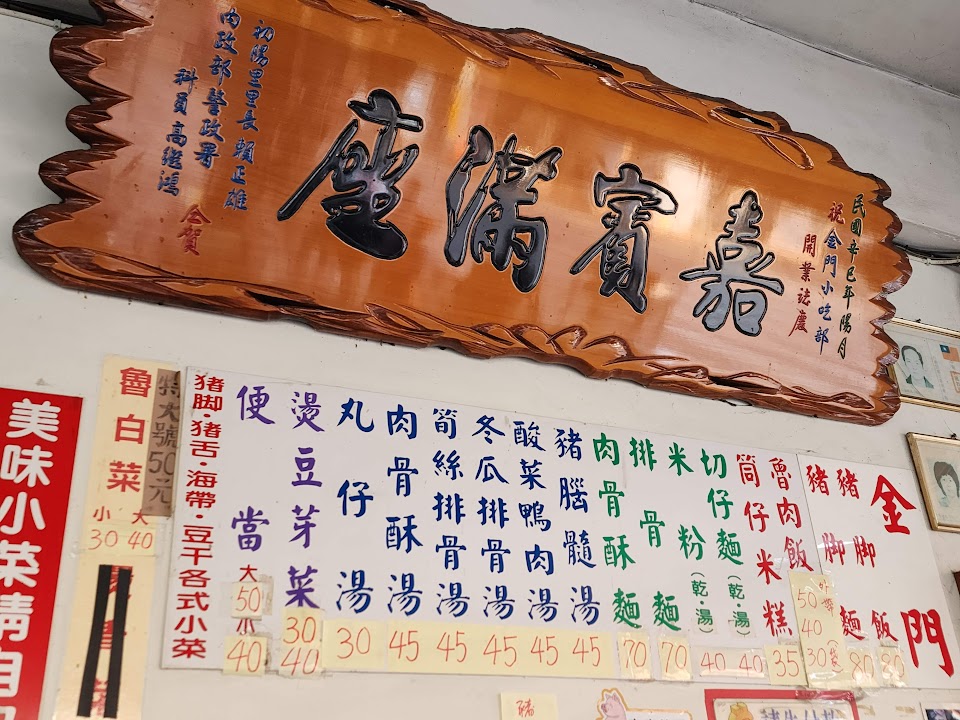 民國辛巳年陽月
祝金門小吃部
開業誌慶
嘉賓滿座
初陽里里長賴正雄
內政部警政署
科員高繼鴻
仝賀
金門
豬脚飯 80
豬脚麵 80
魯肉飯 50 40 30
筒仔米糕 35
切仔麵(乾·湯) 40
米粉(乾·湯) 40
排骨麵 70
肉骨酥麵 70
豬腦髓湯 45
酸菜鴨肉湯 45
冬瓜排骨湯 45
筍絲排骨湯 45
肉骨酥湯 45
丸仔湯 30
燙豆芽菜 30 40
便當 大 50 小 40
豬脚·豬舌·海帶·豆干各式小菜
特大號50元
魯白菜
大 40
小 30
美味小菜請自
豬